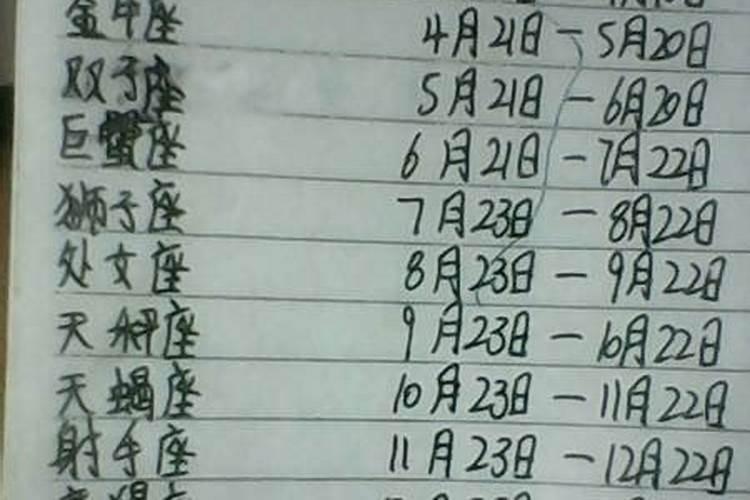 金牛座 4月21日-5月20日
双子座 5月21日-6月20日
巨蟹座 6月21日-7月22日
狮子座 7月23日-8月22日
处女座 8月23日-9月22日
天秤座 9月23日-10月22日
天蝎座 10月23日-11月22日
射手座 11月23日-12月22日